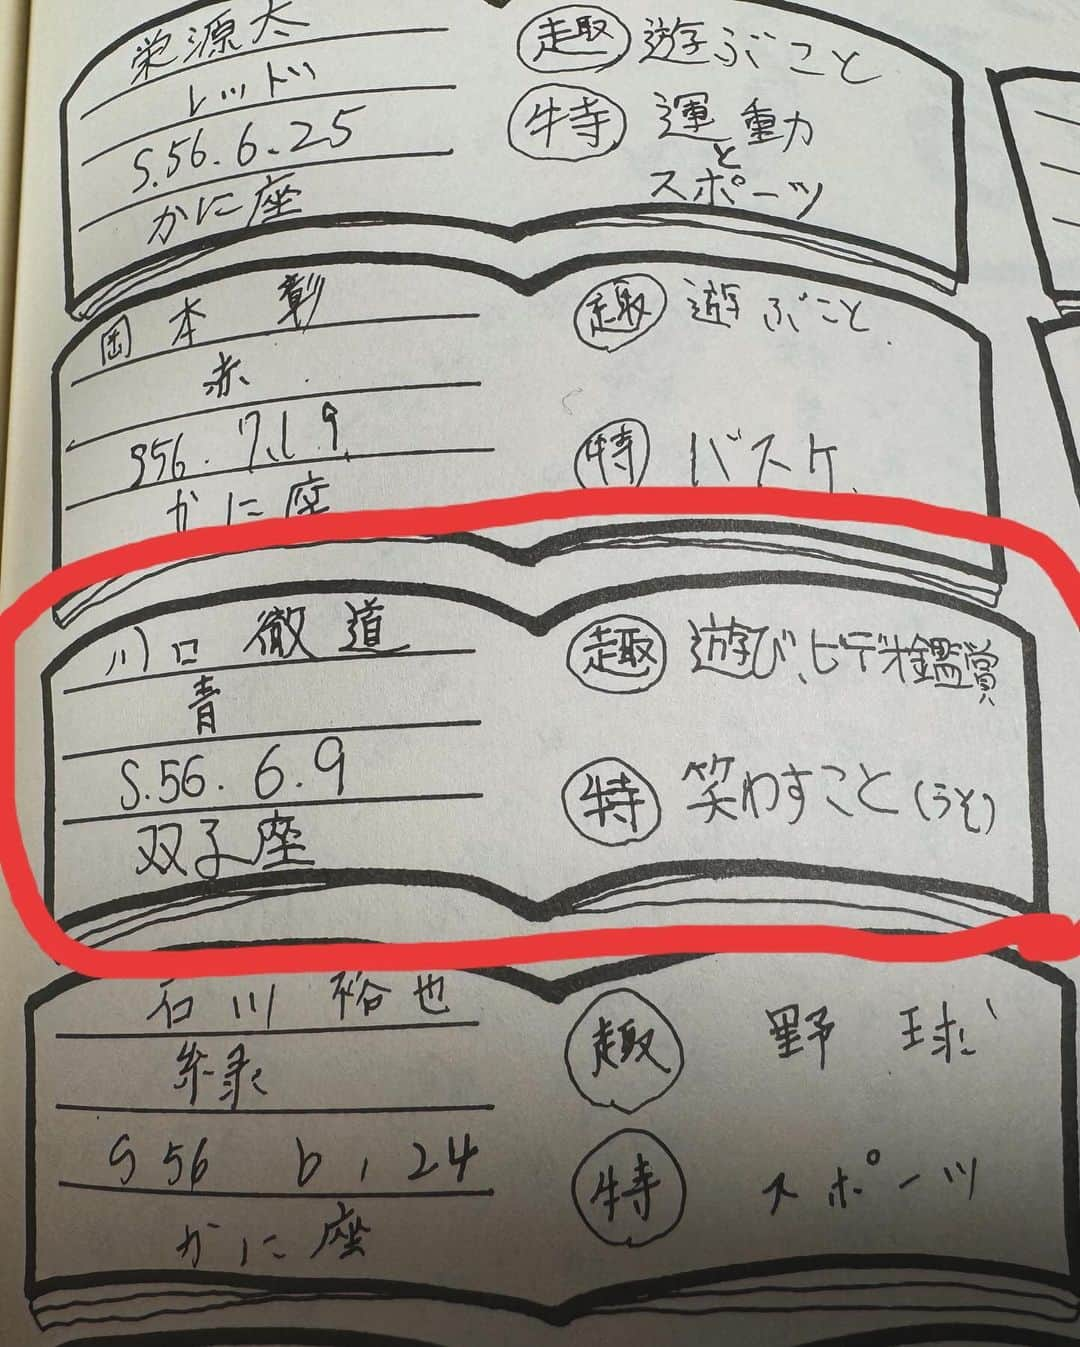 栄源太
レッド
S.56.6.25
かに座
趣 遊ぶこと
特 運動
と
スポーツ
岡本 彰
赤
S56.7.19.
かに座
趣 遊ぶこと.
特 バスケ.
川口 徹道
青
S.56.6.9
双子座
趣 遊び、ビデオ鑑賞
特 笑わすこと(うそ)
石川 裕也
緑
S56 6.24
かに座
趣 野球
特 スポーツ